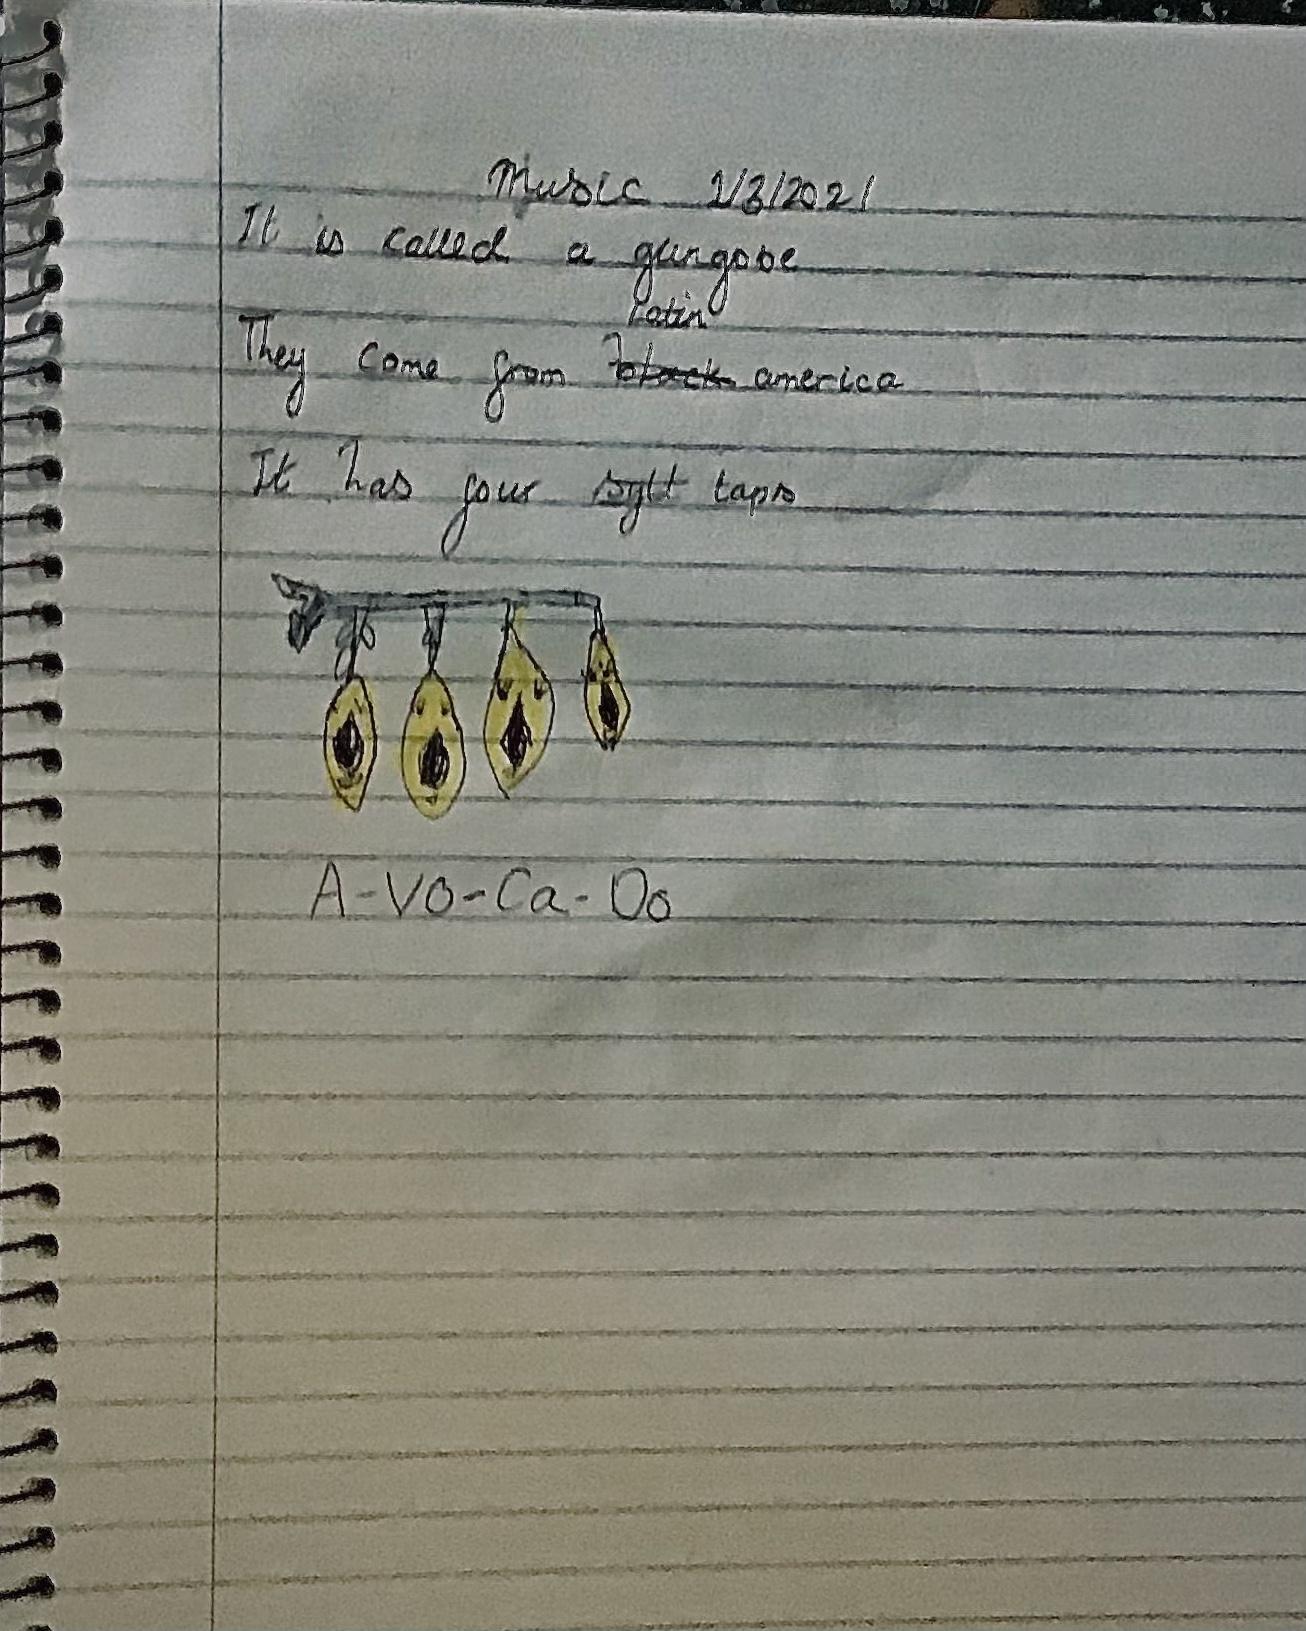 Music 1/3/2021
It is called a gungove
Latin
They come from black america
It has four sylt taps
A-Vo-Ca-Do